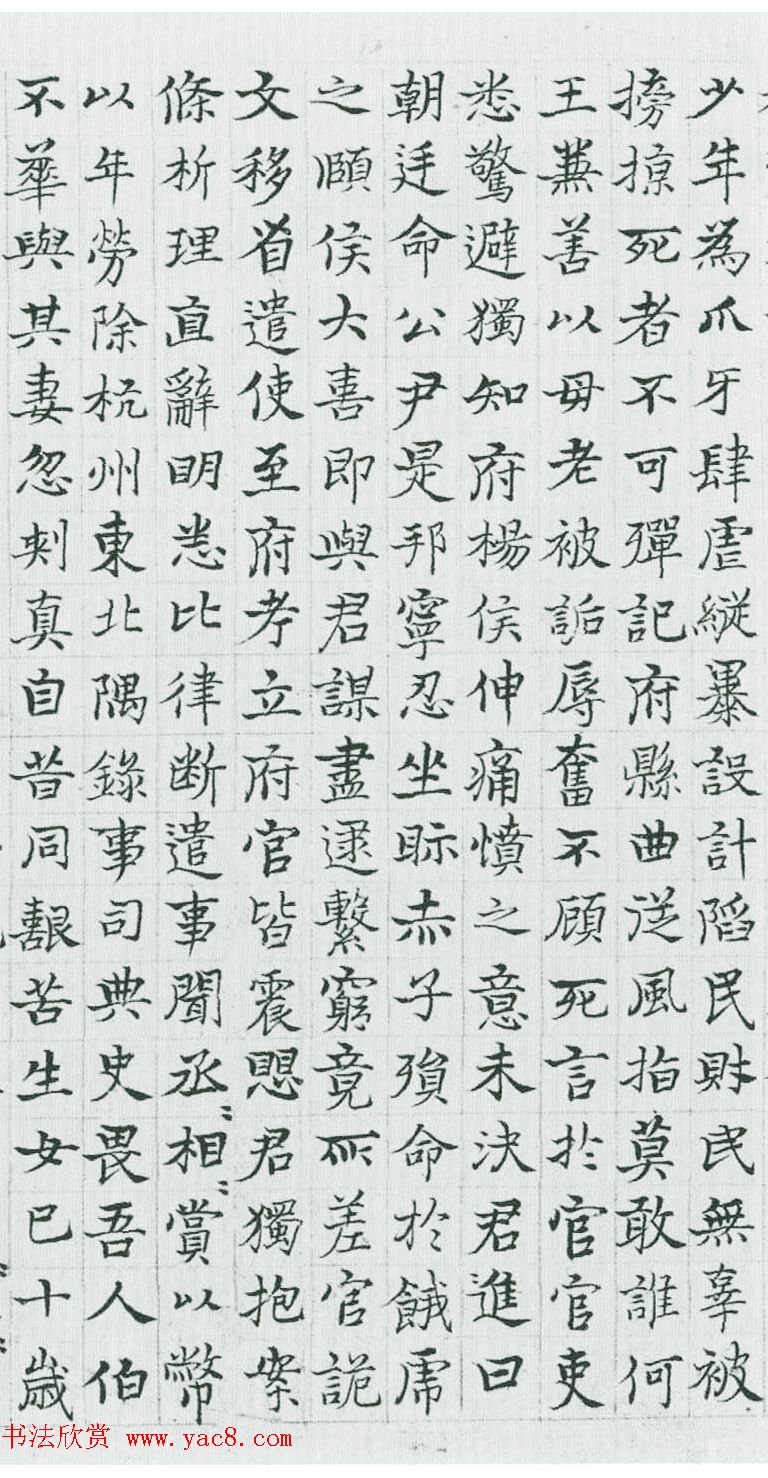 少年為爪牙肆虐縱暴設計陷民財民無辜被
搒掠死者不可殫記府縣曲従風指莫敢誰何
王藂善以毋老被詬辱奮不顧死言於官官吏
悉驚避獨知府楊侯伸痛憤之意未決君進曰
朝廷命公尹是邦寧忍坐眎赤子殞命於餓虎
之頤侯大喜即與君謀盡逮繫窮竟所差官詭
文移省遣使至府考立府官皆震愳君獨抱案
條析理直辭明悉比律断遣事聞丞相賞以幣
以年勞除杭州東北隅錄事司典史畏吾人伯
不華與其妻忽剌真自昔同艱苦生女巳十歲
书法欣赏 www.yac8.com